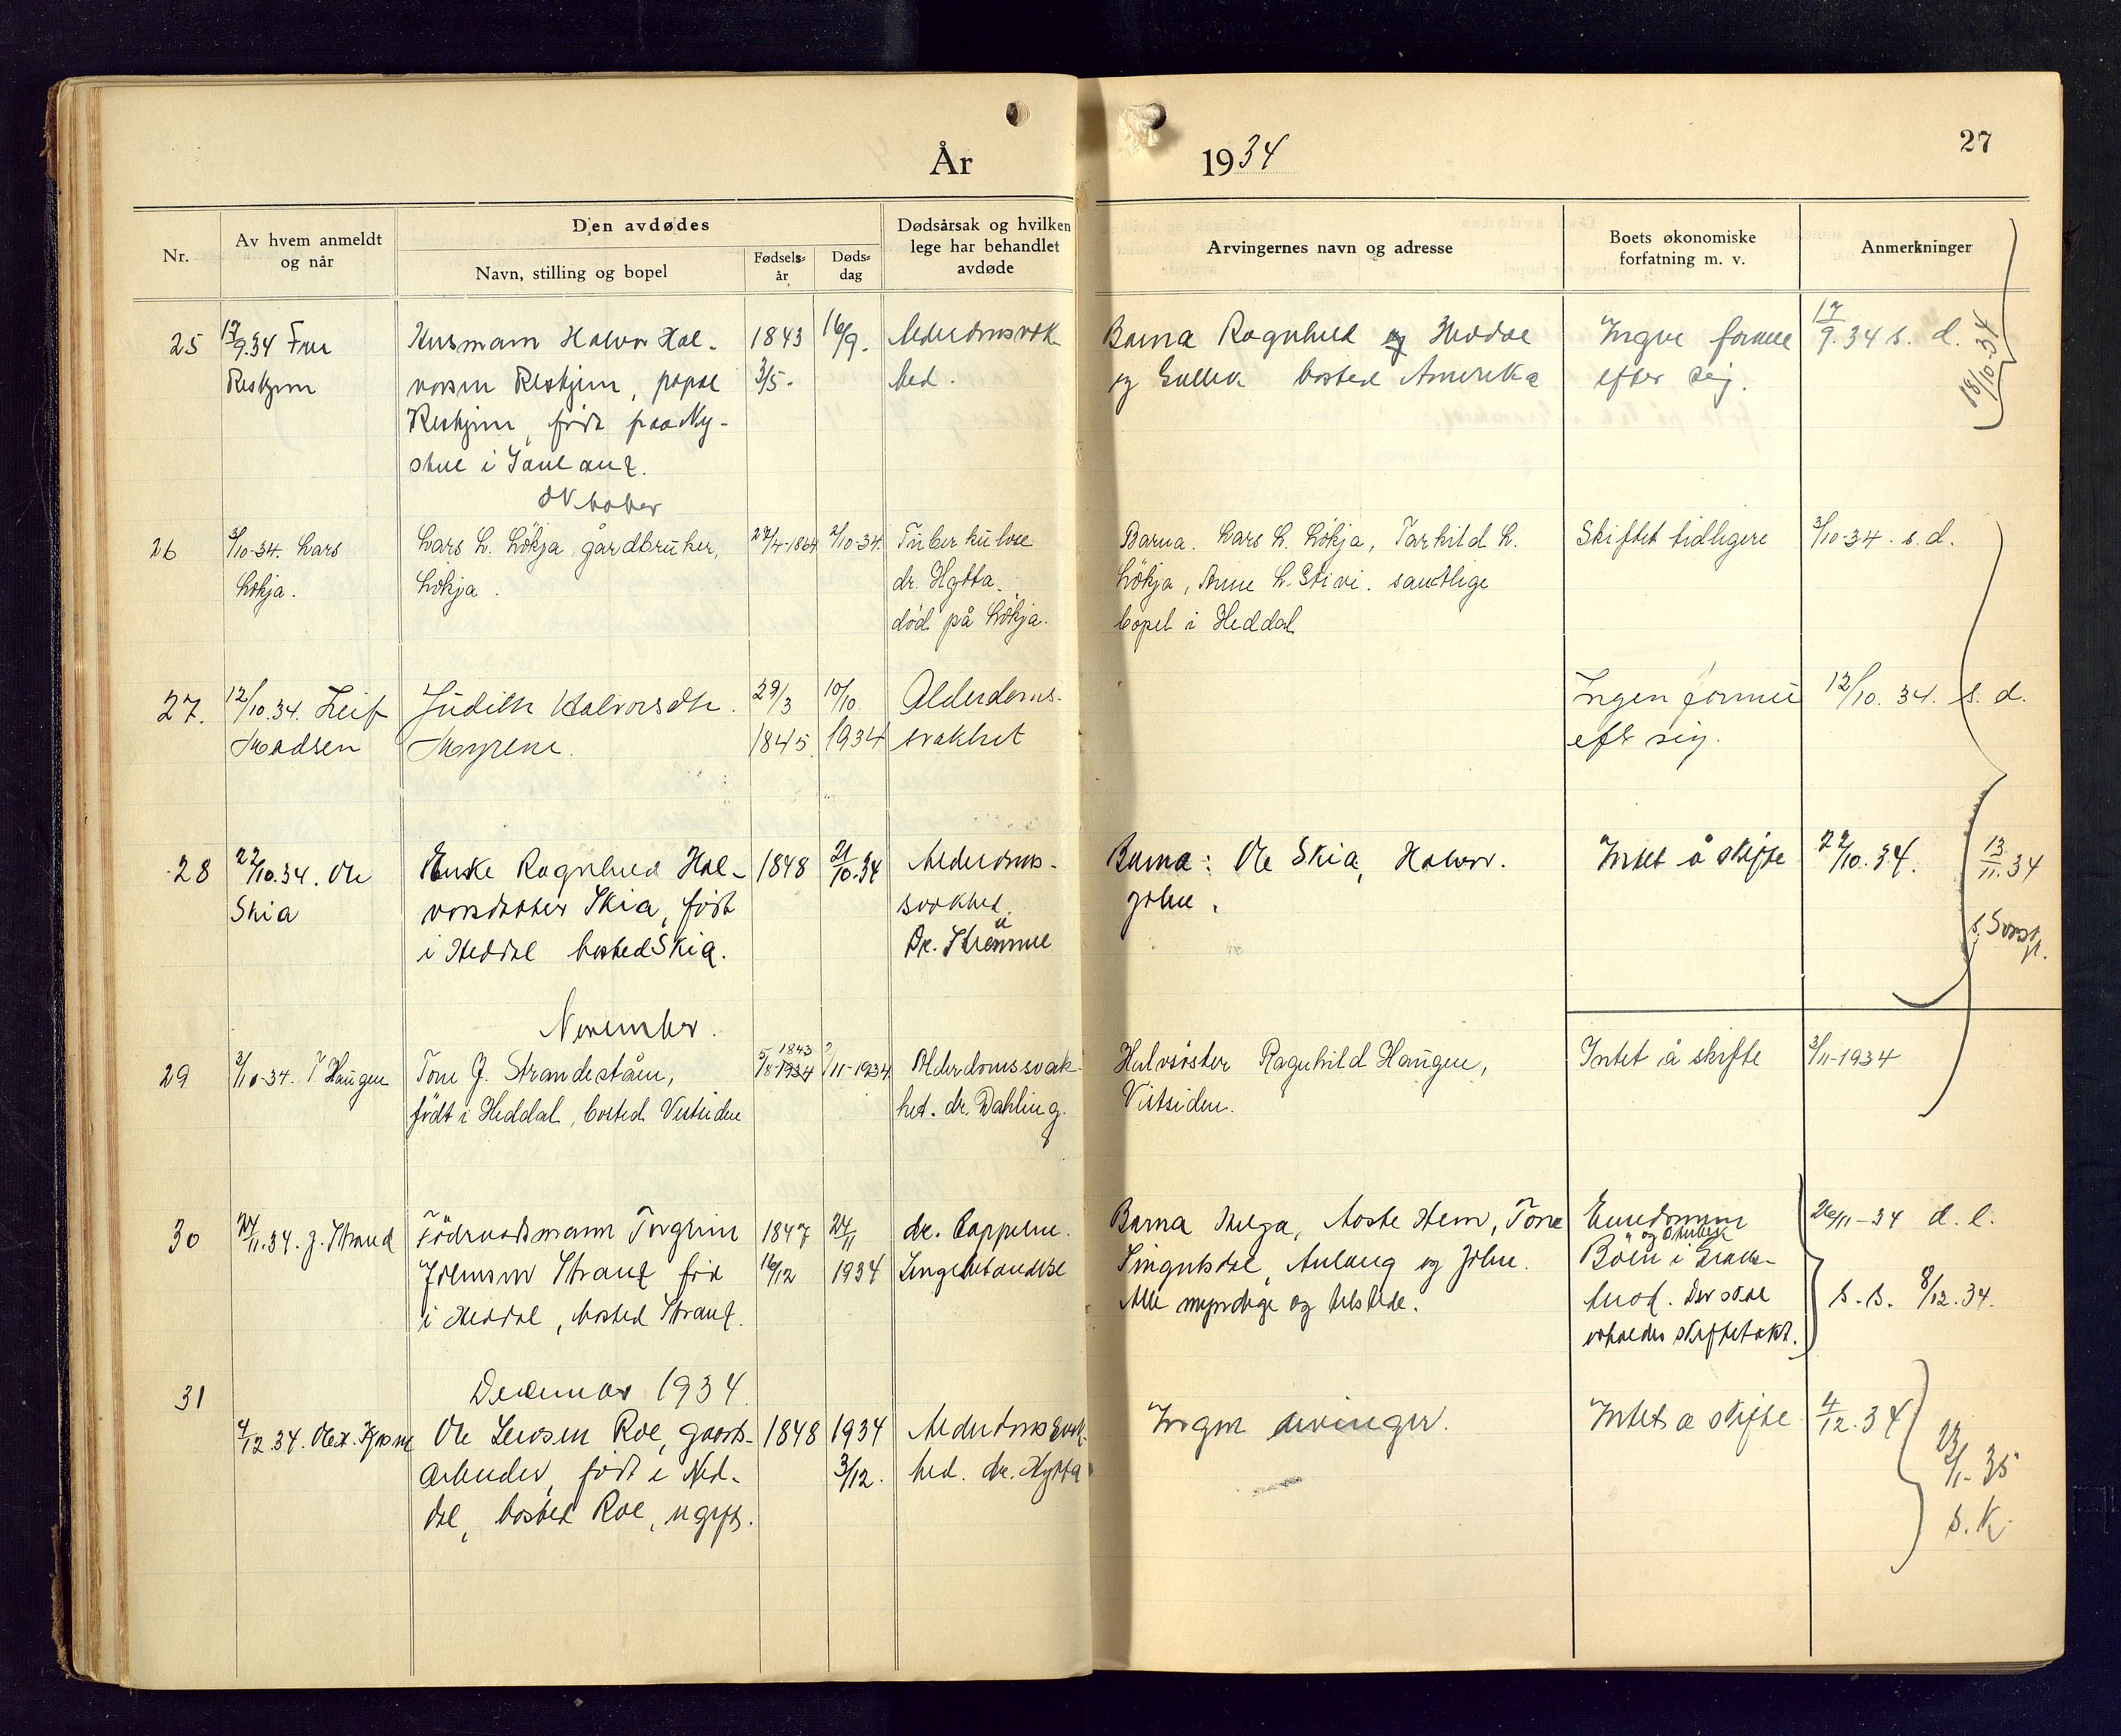 År 1934
27
Nr.
Av hvem anmeldt
og når
Den avdødes
Navn, stilling og bopel
Fødsels-
år
Døds-
dag
Dødsårsak og hvilken
lege har behandlet
avdøde
Arvingernes navn og adresse
Boets økonomiske
forfatning m. v.
Anmerkninger
25
17/9.34 Fru
Reskjem
Husmann Halvor Hal-
vorsen Reskjem, 
Reskjem, født paa Ny-
stue i Sauland.
1843
3/5.
16/9.
Alderdomsvak
hed.
Barna Ragnhild og Heddal
og Gullik bosted Amerika
Ingen formue
efter sig.
17/9.34 s. d.
18/10-34
Oktober
26
3/10-34. Lars
Løkja.
Lars L. Løkja, gårdbruker,
Løkja.
27/4-1864
2/10-34.
Tuberkulose
dr. Hytta.
død på Løkja.
Barna. Lars L. Løkja, Tarkild L.
Løkja, Anne L. Stivi. samtlige
bopel i Heddal
Skiftet tidligere
3/10-34. s.d.
27.
12/10.34. Leif
Madsen
Judith Halvorsdtr.
Myrene.
29/3
1845
10/10.
1934
Alderdoms-
svakhet
Ingen formue
eft sig.
12/10. 34. s. d.
28
22/10.34. Ole
Skia
Enke Ragnhild Hal-
vorsdatter Skia, født
i Heddal bosted Skia.
1848
21/10.34
Alderdoms-
svakhed.
Dr. Strømme
Barna: Ole Skia, Halvor.
John.
Intet å skifte
22/10.34.
13/11.34
November.
29
3/11-34. T Haugen
Tone J. Strandeståen,
født i Heddal, bosted Vestsiden
1843
5/8-1934
2/11-1934
Alderdomssvak-
het. dr. Dahling.
Halvsøster Ragnhild Haugen,
Vestsiden.
Intet å skifte
3/11-1934
30
24/11.34. J. Strand
Födraadsmann Torgrim
Johnsen Strand född
i Heddal, bosted Strand.
1847
16/12
24/11
1934
dr. Cappelen.
Lungebetændelse
Barna Helga, Aaste Hem, Tone
Lingutsdal, Aulaug og John.
Alle myndige og tilstede.
Eiendommen
Böen i
Der skal
avholdes skiftetakt.
26/11-34 d. l.
s. s. 8/12.34.
Desember 1934.
31
4/12.34.
Ole Larsen Roe, gaards-
arbeider, født i Hed-
dal, bosted Roe, ugift.
1848
1934
3/12.
Alderdomssvak-
hed. dr. Hytta
Ingen arvinger.
Intet a skifte
4/12.34
23/1-35
s. K.